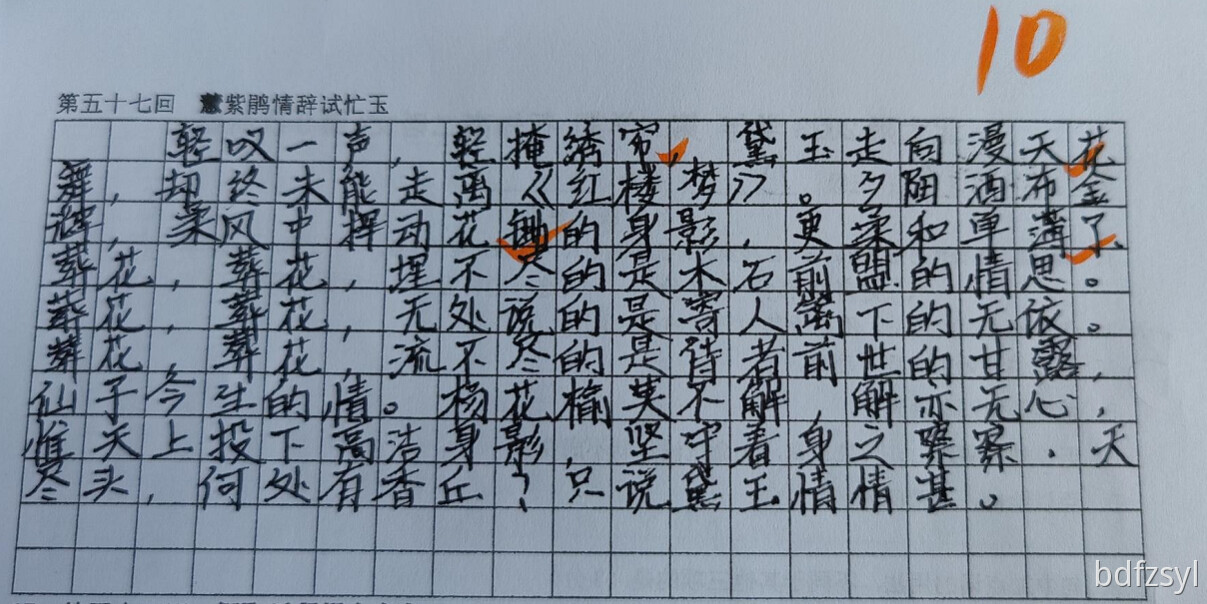 10
第五十七回 慧紫鹃情辞试忙玉
轻叹一声，轻掩绣帘，黛玉走向漫天花
舞，却终未能走离《红楼梦》。夕阳洒布金
辉，柔风中挥动花锄的身影，更柔和单薄了。
葬花，葬花，埋不尽的是木石前盟的情思。
葬花，葬花，无处说的是寄人篱下的无依。
葬花，葬花，流不尽的是侍者前世的甘露，
仙子今生的情。杨花榆荚不解，解亦无心，
惟天上投下高洁身影，坚守着身之察察．天
尽头，何处有香丘？只说黛玉情情甚。
bdfzsyl